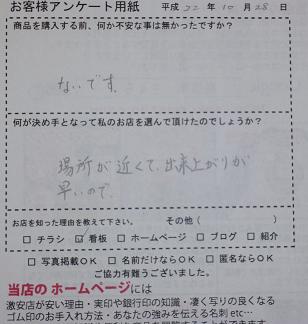 お客様アンケート用紙 平成 22 年 10 月 28 日
商品を購入する前、何か不安な事は無かったですか?
ないです。
何が決め手となって私のお店を選んで頂けたのでしょうか?
場所が近くて、出来上がりが
早いので
お店を知った理由を教えて下さい。 その他( )
□ チラシ ☑ 看板 □ ホームページ □ ブログ □ 紹介
□ 写真掲載OK □ 名前だけならOK □ 匿名ならOK
ご協力有難うございました。
当店の ホームページには
激安店が安い理由・実印や銀行印の知識・凄く写りの良くなる
ゴム印のお手入れ方法・あなたの強みを伝える名刺 etc…